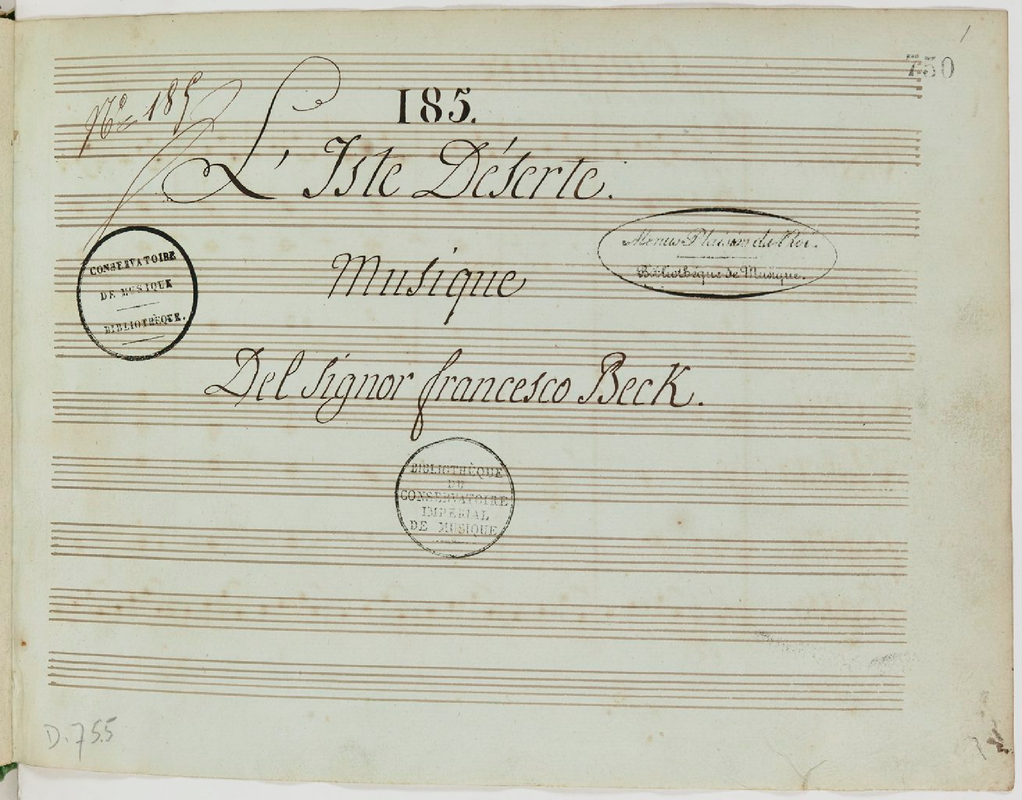 1
750
N.o 185
185.
L'Isle Déserte.
Musique
Del signor francesco Beck.
Menus Plaisirs du Roi.
Bibliothèque de Musique.
CONSERVATOIRE
DE MUSIQUE
BIBLIOTHÈQUE.
BIBLIOTHÈQUE
DU
CONSERVATOIRE
IMPÉRIAL
DE MUSIQUE
D.755